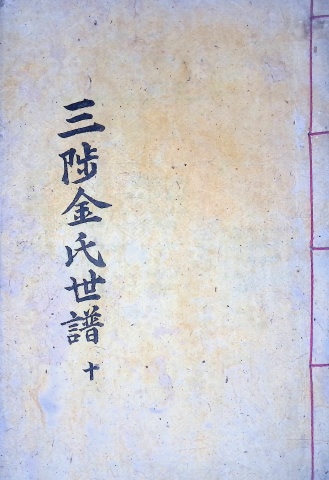 三陟金氏世譜 十